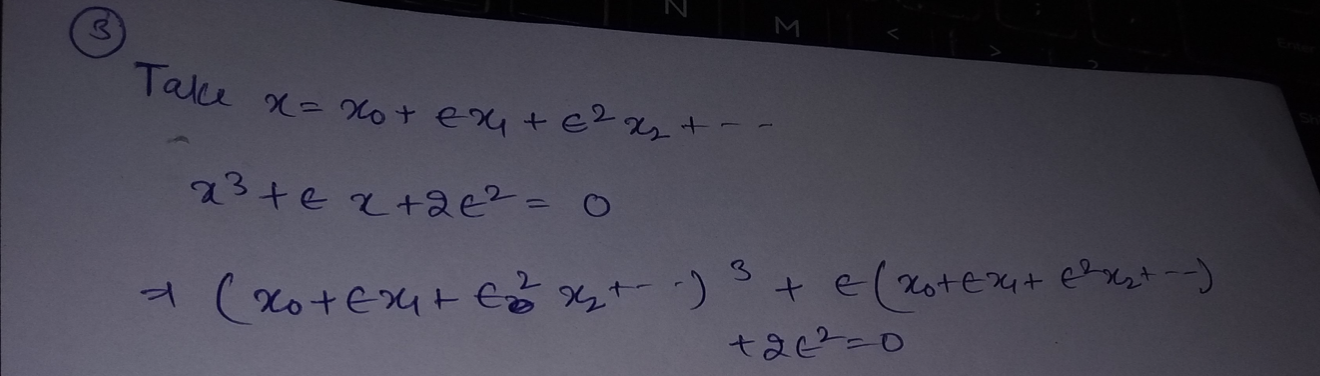 N M < >
③
Take x = x₀ + ϵx₁ + ϵ² x₂ + ---
x³ + ϵ x + 2ϵ² = 0
⇒ (x₀ + ϵx₁ + ϵ² x₂ + ---)³ + ϵ(x₀ + ϵx₁ + ϵ²x₂ + ---)
+ 2ϵ² = 0